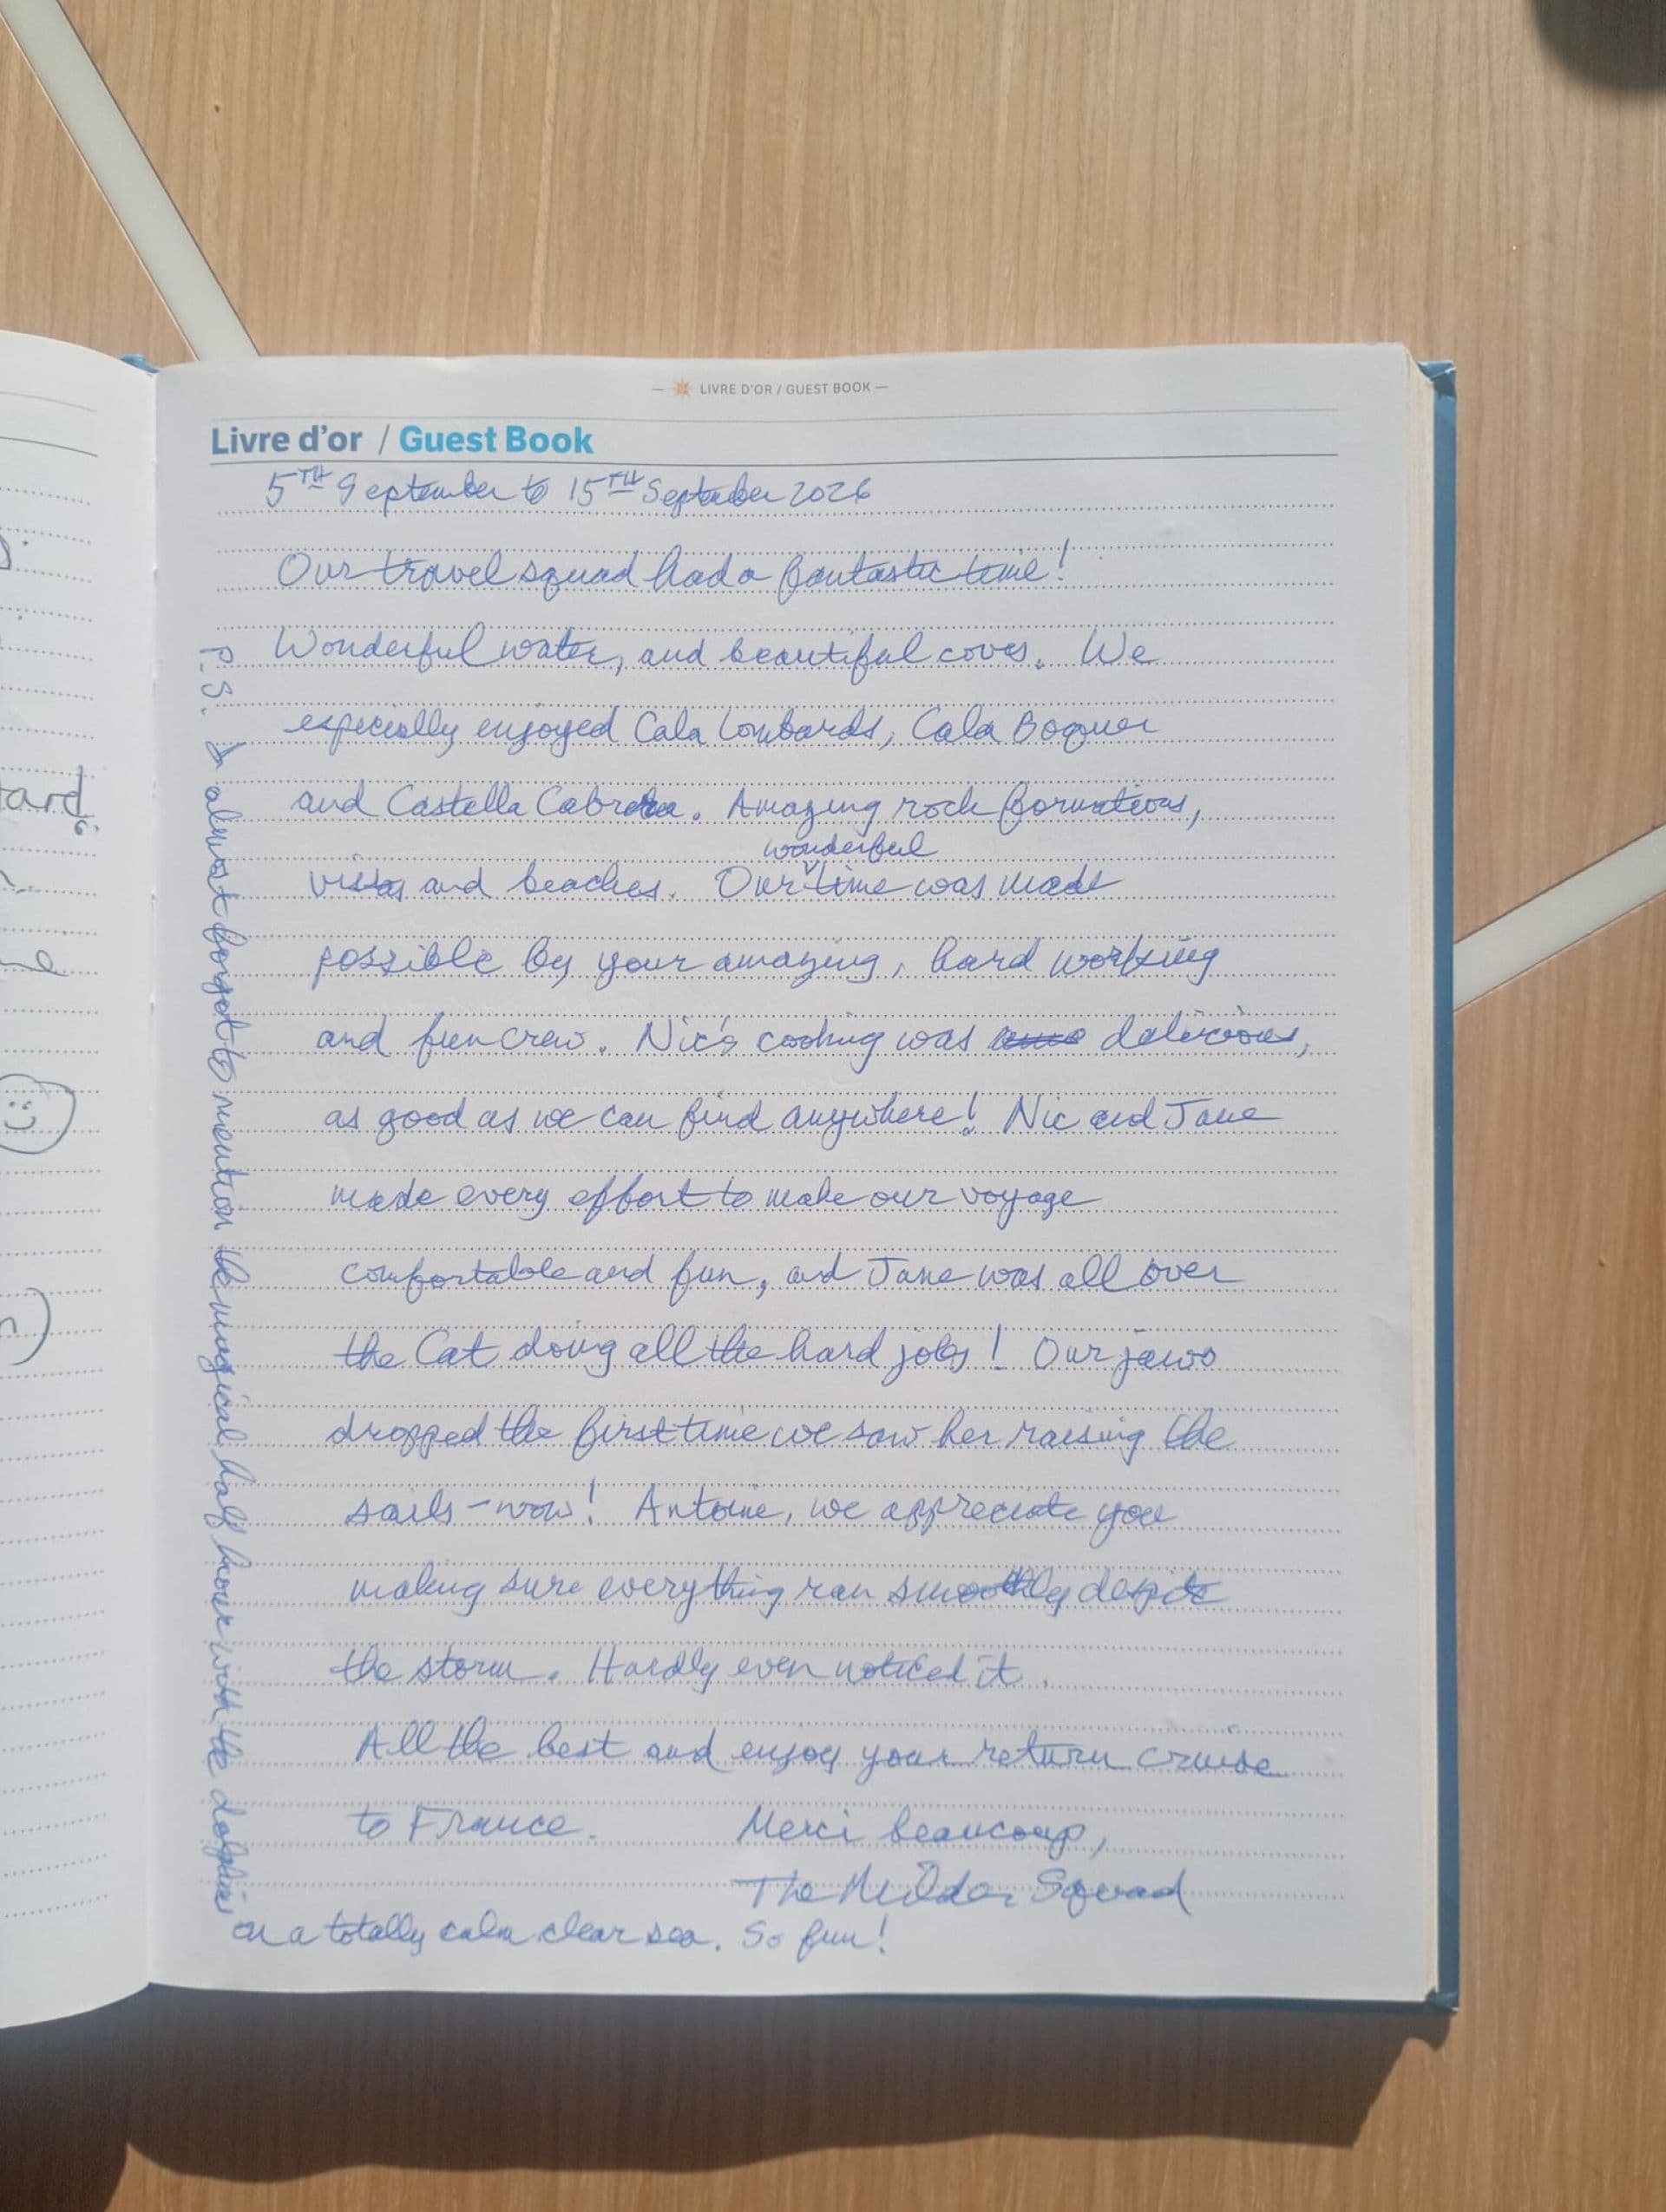 LIVRE D'OR / GUEST BOOK
Livre d'or / Guest Book
5TH September to 15TH September 2026
Our travel squad had a fantastic time!
Wonderful water, and beautiful coves. We
especially enjoyed Cala Lombards, Cala Boquer
and Castella Cabrera. Amazing rock formations,
wonderful
vistas and beaches. Our time was made
possible by your amazing, hard working
and fun crew. Nic's cooking was delicious,
as good as we can find anywhere! Nic and Jane
made every effort to make our voyage
comfortable and fun, and Jane was all over
the Cat doing all the hard jobs! Our jaws
dropped the first time we saw her raising the
sails - wow! Antoine, we appreciate you
making sure everything ran smoothly depite
the storm. Hardly even noticed it.
All the best and enjoy your return cruise
to France. Merci beaucoup,
The Squad
P.S. I almost forgot to mention the magical half hour with the dolphins
on a totally calm clear sea. So fun!
ard